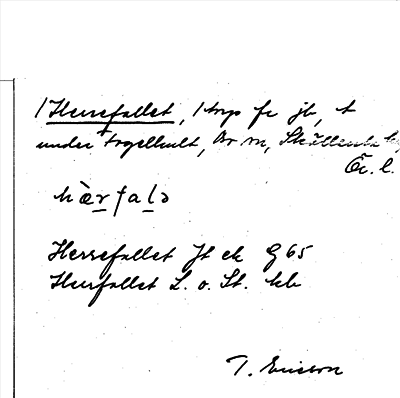 /Herrefallet, /torp fr jb, t
under Fogelhult, Br m, Skällerud
Ör. l.
hæ̀rfalə
Herrefallet Jt ek G65
Herrfallet L. o. St. kb
T. Ericson